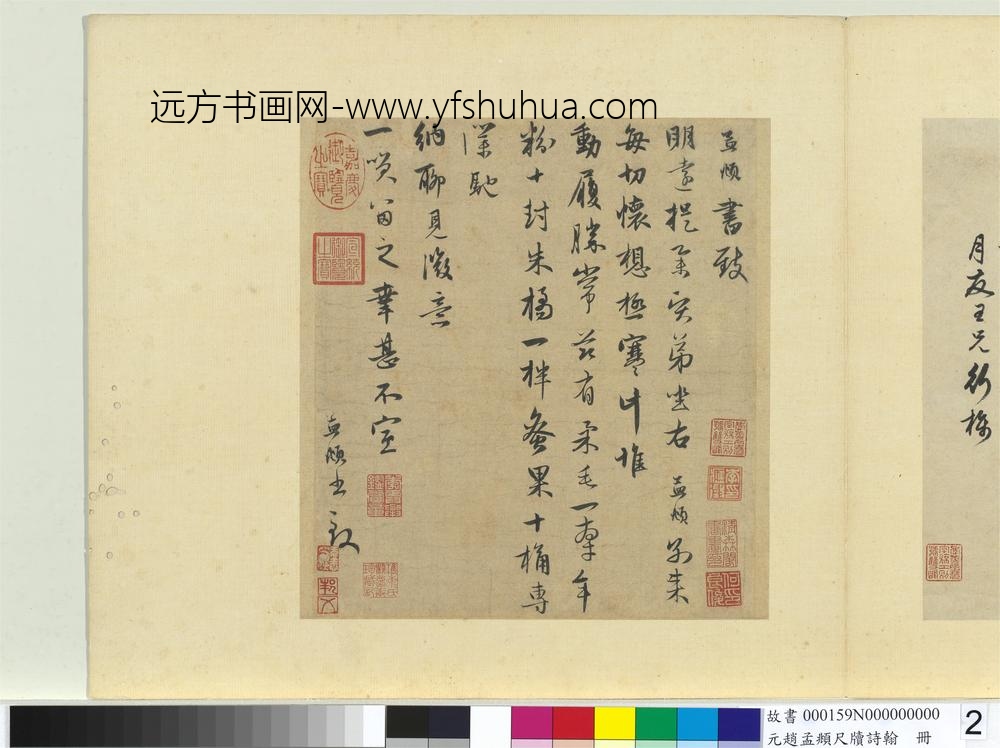 远方书画网-www.yfshuhua.com
孟頫書致
明遠提舉賢弟坐右 孟頫別來
每切懷想極寒計惟
動履勝常茲有柔毛一牽年
粉十封朱橘一柈蚤果十桶專
浼馳
納聊見微意
一笑留之幸甚不宣
孟頫書致
月友王兄
嘉慶御覽之寶
宣統御覽之寶
故書 000159N000000000
元趙孟頫尺牘詩翰 冊
2